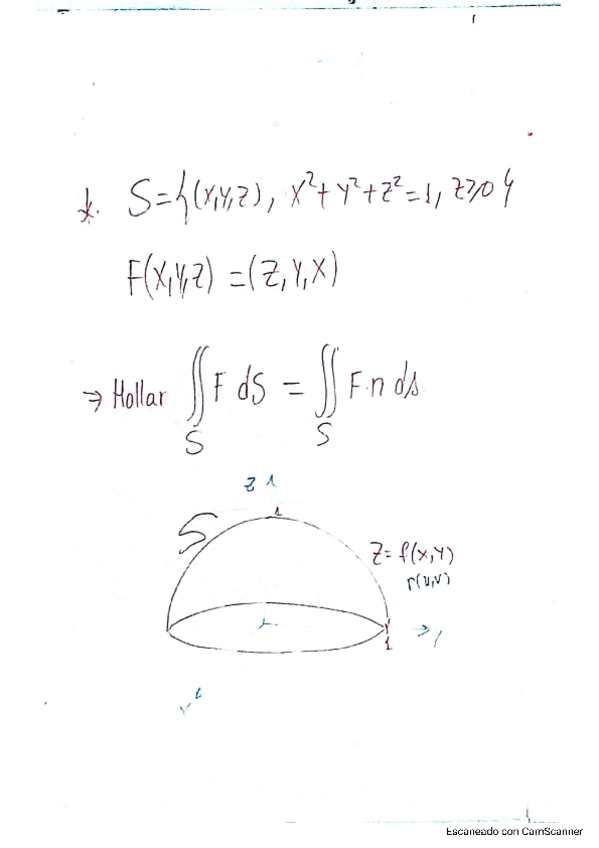 *. S={(x,y,z), x²+y²+z²=1, z≥0}
F(x,y,z) =(z,y,x)
⇒ Hallar ∬_S F dS = ∬_S F·n ds
z
1
S
z=f(x,y)
r(u,v)
1
y
x
Escaneado con CamScanner